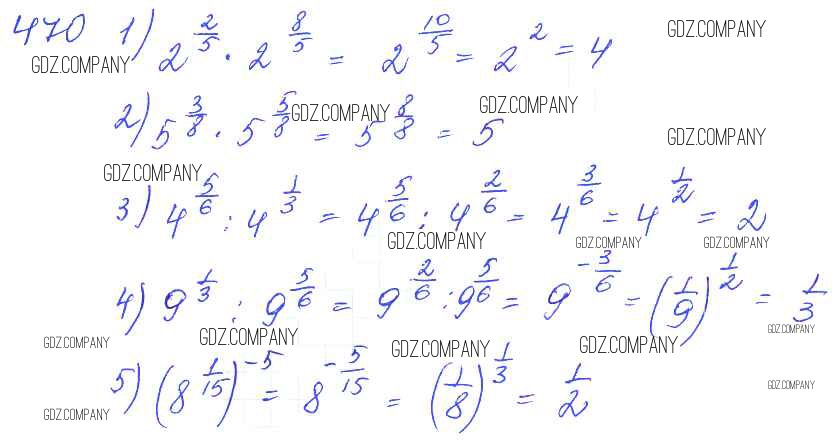 470 1) 2^(2/5) · 2^(8/5) = 2^(10/5) = 2^2 = 4
GDZ.COMPANY
GDZ.COMPANY
2) 5^(3/8) · 5^(5/8) = 5^(8/8) = 5
GDZ.COMPANY GDZ.COMPANY
GDZ.COMPANY
GDZ.COMPANY
3) 4^(5/6) : 4^(1/3) = 4^(5/6) : 4^(2/6) = 4^(3/6) = 4^(1/2) = 2
GDZ.COMPANY GDZ.COMPANY GDZ.COMPANY
4) 9^(1/3) : 9^(5/6) = 9^(2/6) : 9^(5/6) = 9^(-3/6) = (1/9)^(1/2) = 1/3
GDZ.COMPANY
GDZ.COMPANY GDZ.COMPANY GDZ.COMPANY GDZ.COMPANY
5) (8^(1/15))^(-5) = 8^(-5/15) = (1/8)^(1/3) = 1/2
GDZ.COMPANY
GDZ.COMPANY